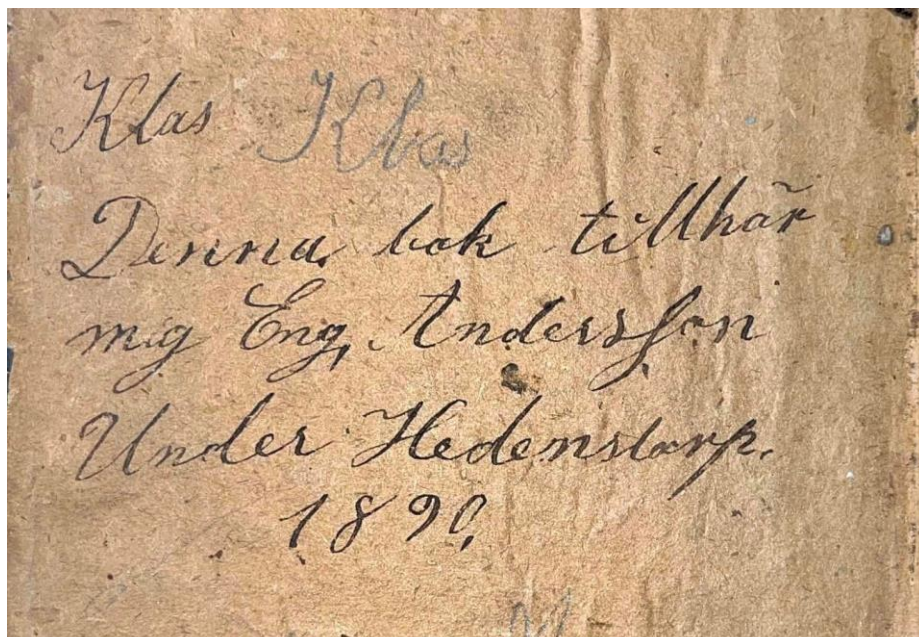 Klas Klas
Denna bok tillhör
mig Eng, Andersson
Under Hedenstorp.
1890,